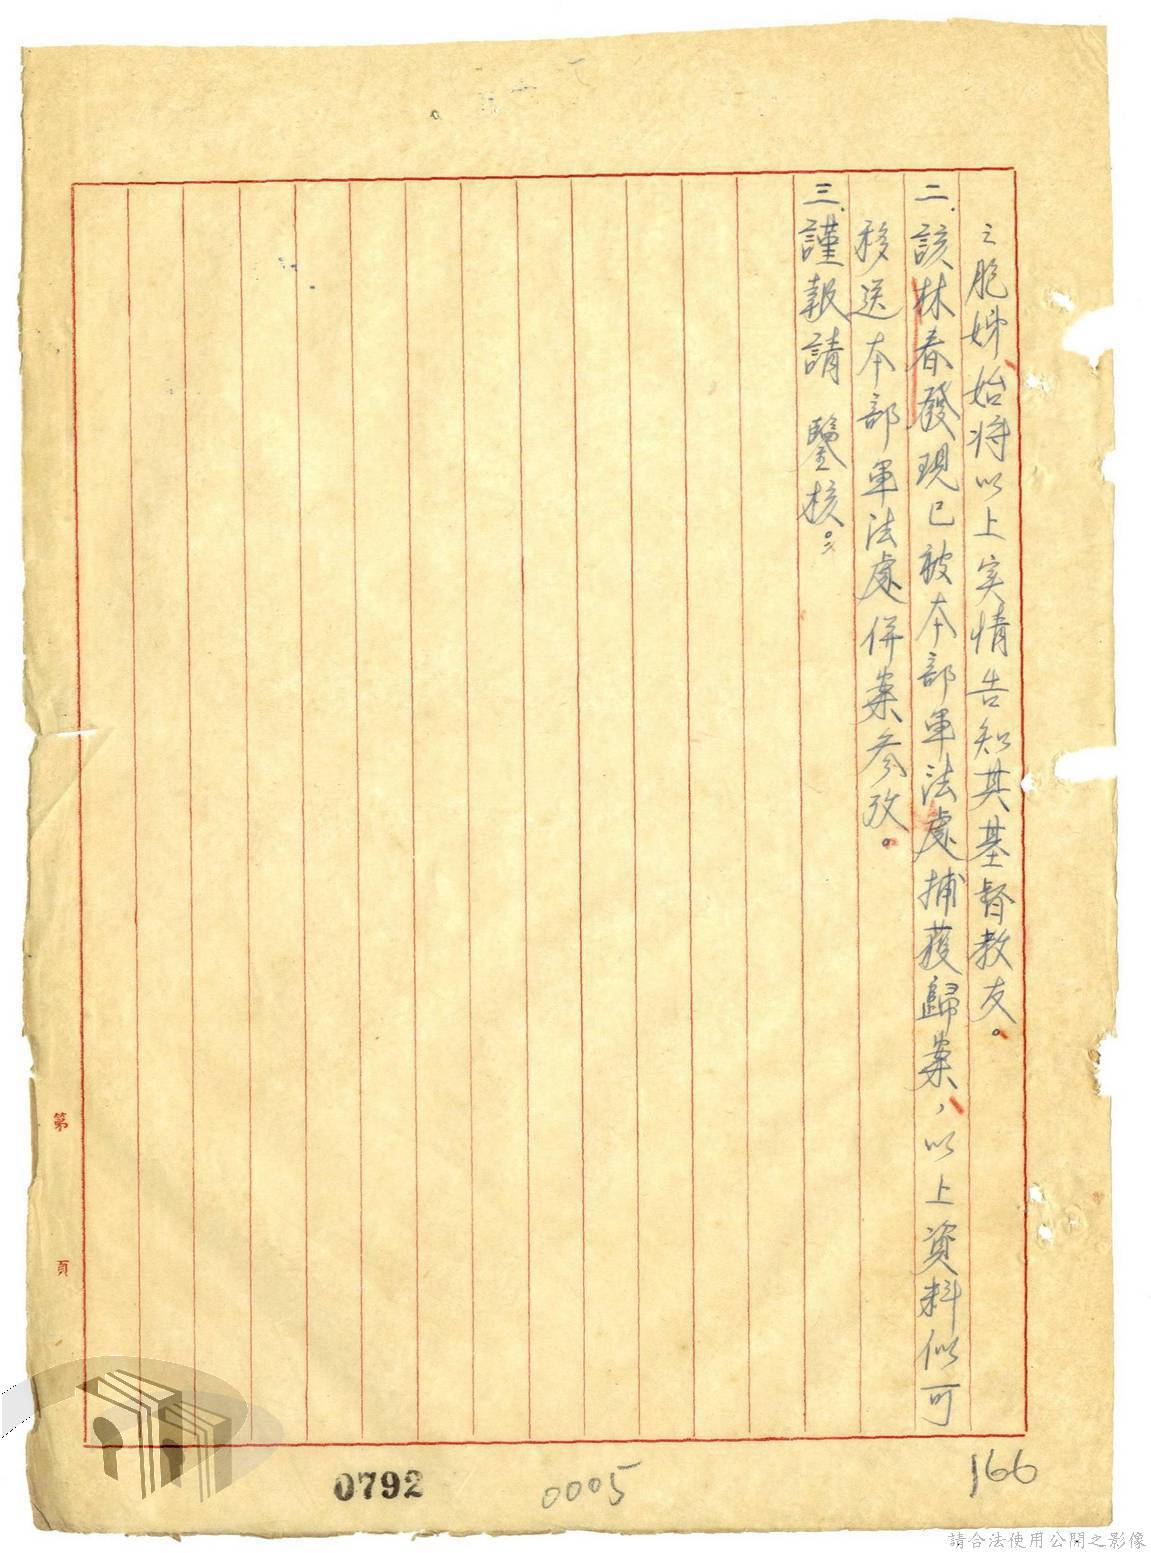 之胞姊始将以上实情告知其基督教友。
二.該林春發現已被本部軍法處捕獲歸案，以上資料似可
移送本部軍法處併案參攷。
三.謹報請 鑒核。
第 頁
0792
0005
166
請合法使用公開之影像